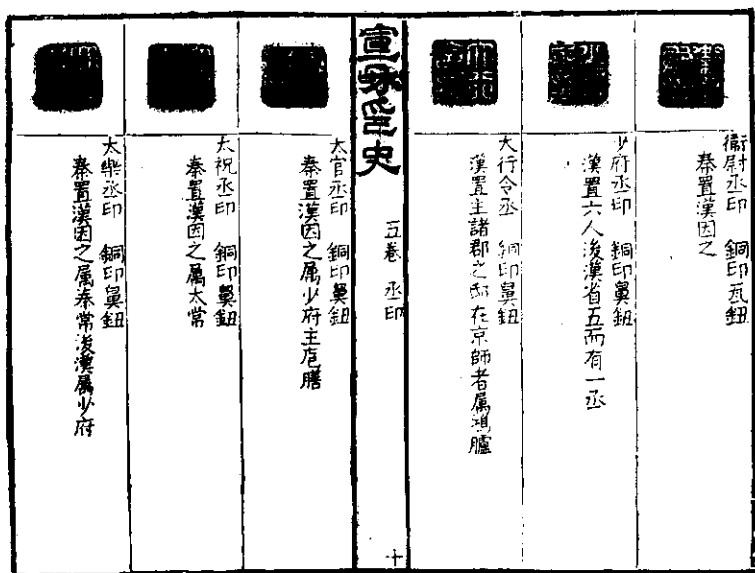 衞尉丞印　銅印瓦鈕
秦置漢因之
少府丞印　銅印鼻鈕
漢置六人後漢省五而有一丞
大行令丞　銅印鼻鈕
漢置主諸郡之邸在京師者属鴻臚
宣和印史
五卷　丞印
十
太官丞印　銅印鼻鈕
秦置漢因之属少府主庖膳
太祝丞印　銅印鼻鈕
秦置漢因之属太常
太樂丞印　銅印鼻鈕
秦置漢因之属奉常後漢属少府